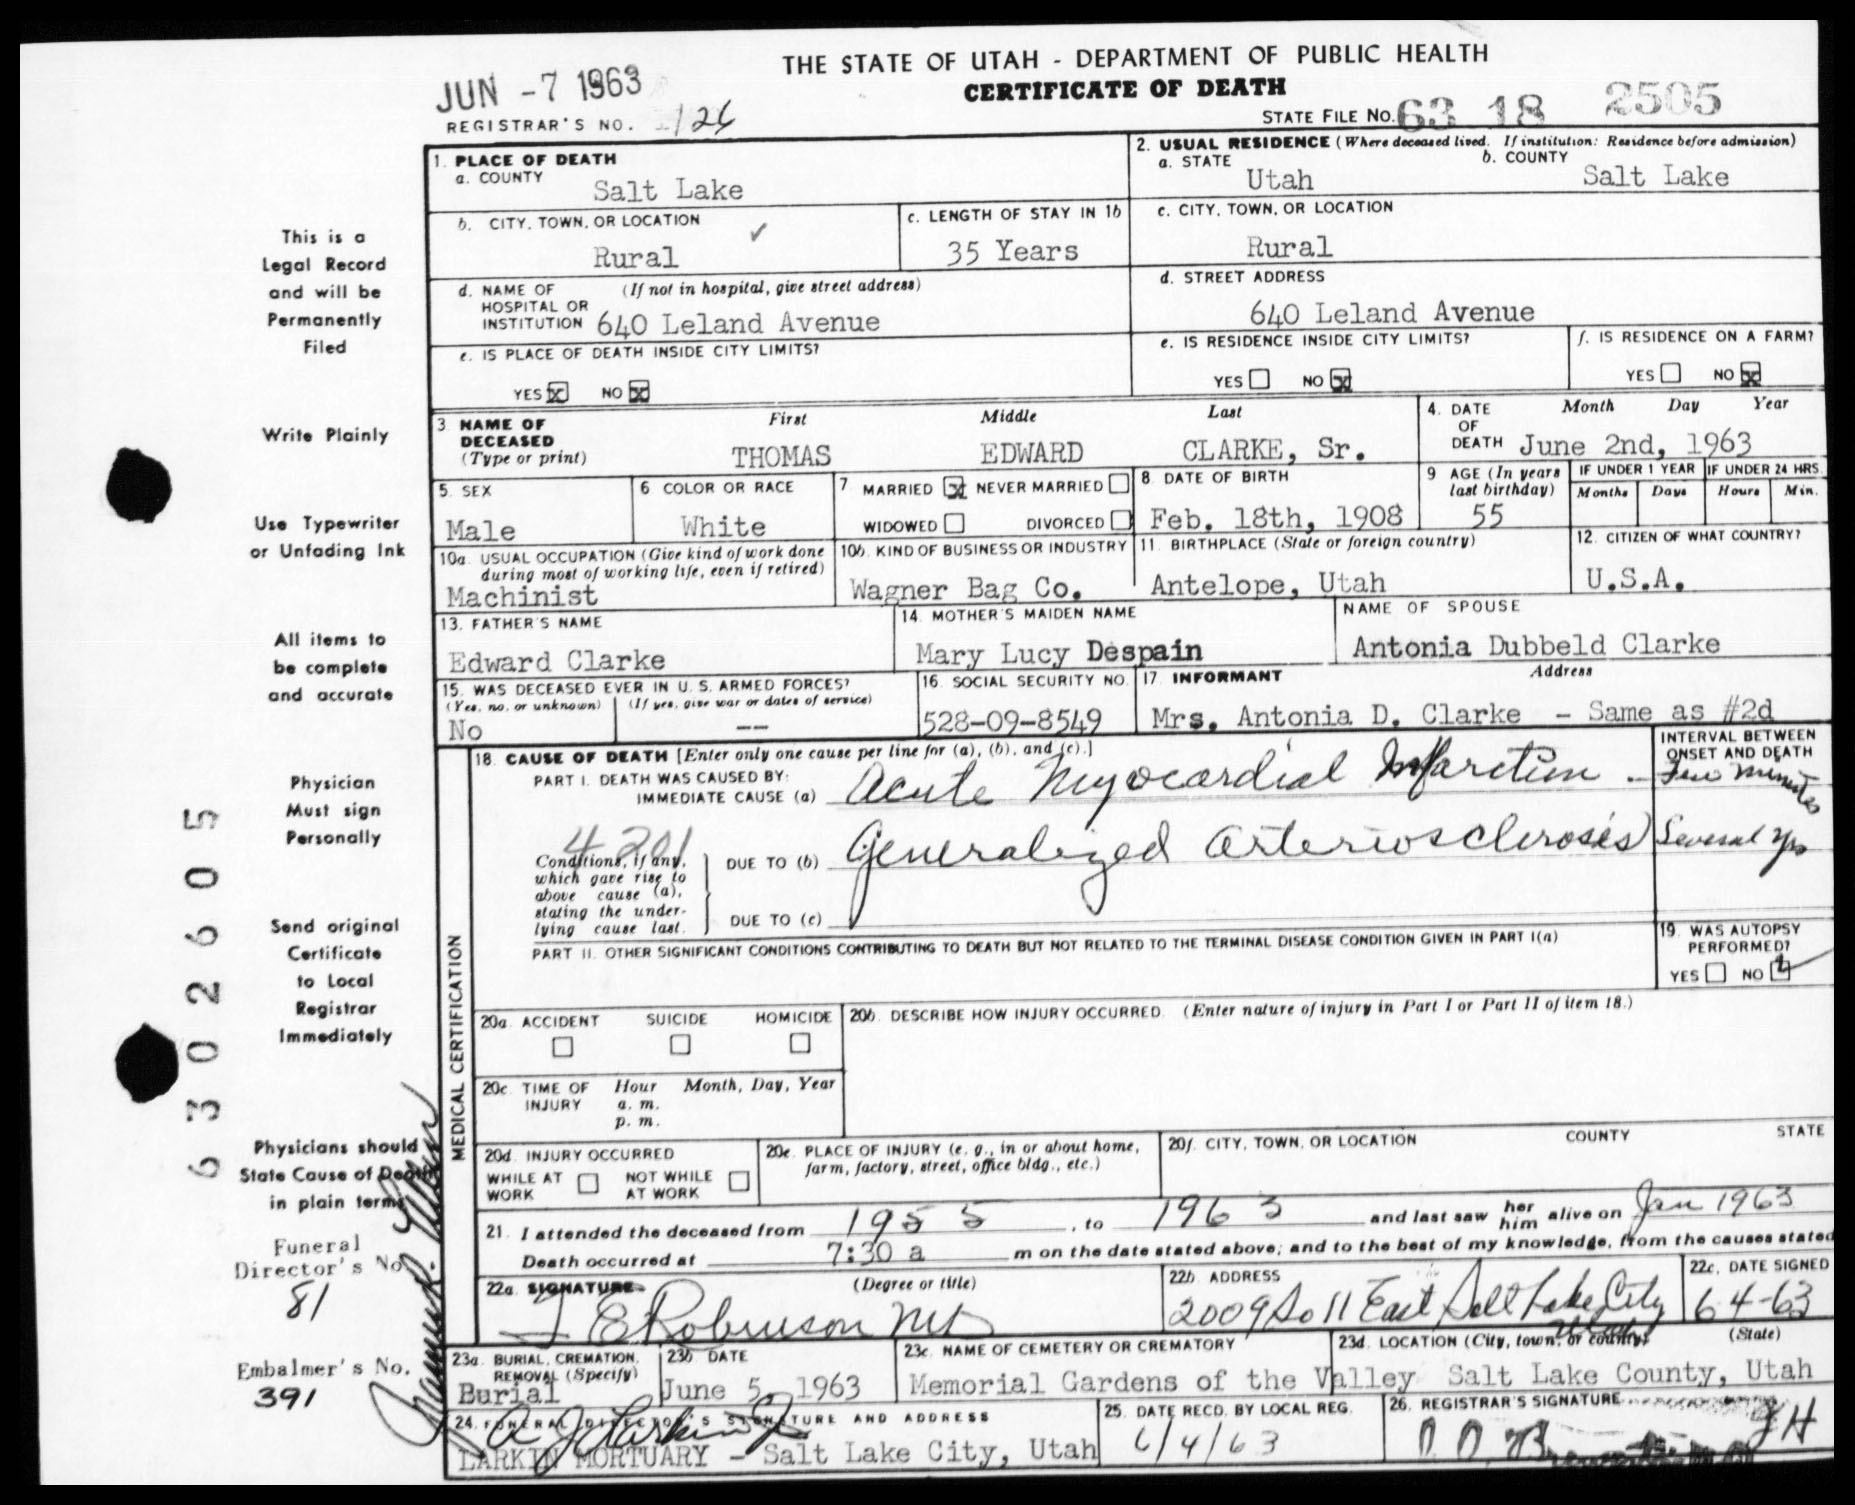 THE STATE OF UTAH - DEPARTMENT OF PUBLIC HEALTH
CERTIFICATE OF DEATH
JUN -7 1963
REGISTRAR'S NO. 126
STATE FILE NO. 63 18 2505
This is a
Legal Record
and will be
Permanently
Filed
Write Plainly
Use Typewriter
or Unfading Ink
All items to
be complete
and accurate
Physician
Must sign
Personally
Send original
Certificate
to Local
Registrar
Immediately
Physicians should
State Cause of Death
in plain terms
Funeral
Director's No.
81
Embalmer's No.
391
6302605
1. PLACE OF DEATH
a. COUNTY
Salt Lake
2. USUAL RESIDENCE (Where deceased lived. If institution: Residence before admission)
a. STATE
Utah
b. COUNTY
Salt Lake
b. CITY, TOWN, OR LOCATION
Rural
c. LENGTH OF STAY IN 1b
35 Years
c. CITY, TOWN, OR LOCATION
Rural
d. NAME OF HOSPITAL OR INSTITUTION (If not in hospital, give street address)
640 Leland Avenue
d. STREET ADDRESS
640 Leland Avenue
e. IS PLACE OF DEATH INSIDE CITY LIMITS?
YES X NO X
e. IS RESIDENCE INSIDE CITY LIMITS?
YES NO X
f. IS RESIDENCE ON A FARM?
YES NO X
3. NAME OF DECEASED (Type or print)
First Middle Last
THOMAS EDWARD CLARKE, Sr.
4. DATE OF DEATH Month Day Year
June 2nd, 1963
5. SEX
Male
6 COLOR OR RACE
White
7 MARRIED X NEVER MARRIED
WIDOWED DIVORCED
8 DATE OF BIRTH
Feb. 18th, 1908
9 AGE (In years last birthday)
55
IF UNDER 1 YEAR
Months Days
IF UNDER 24 HRS.
Hours Min.
10a. USUAL OCCUPATION (Give kind of work done during most of working life, even if retired)
Machinist
10b. KIND OF BUSINESS OR INDUSTRY
Wagner Bag Co.
11. BIRTHPLACE (State or foreign country)
Antelope, Utah
12. CITIZEN OF WHAT COUNTRY?
U.S.A.
13. FATHER'S NAME
Edward Clarke
14. MOTHER'S MAIDEN NAME
Mary Lucy Despain
NAME OF SPOUSE
Antonia Dubbeld Clarke
15. WAS DECEASED EVER IN U. S. ARMED FORCES?
(Yes, no, or unknown) (If yes, give war or dates of service)
No --
16. SOCIAL SECURITY NO.
528-09-8549
17. INFORMANT Address
Mrs. Antonia D. Clarke - Same as #2d
MEDICAL CERTIFICATION
18. CAUSE OF DEATH [Enter only one cause per line for (a), (b), and (c).]
INTERVAL BETWEEN ONSET AND DEATH
PART I. DEATH WAS CAUSED BY:
IMMEDIATE CAUSE (a) Acute Myocardial Infarction - Few Minutes
4201
Conditions, if any, which gave rise to above cause (a), stating the underlying cause last.
DUE TO (b) Generalized Arteriosclerosis Several yrs
DUE TO (c)
PART II. OTHER SIGNIFICANT CONDITIONS CONTRIBUTING TO DEATH BUT NOT RELATED TO THE TERMINAL DISEASE CONDITION GIVEN IN PART I(a)
19. WAS AUTOPSY PERFORMED?
YES NO
20a. ACCIDENT SUICIDE HOMICIDE
20b. DESCRIBE HOW INJURY OCCURRED. (Enter nature of injury in Part I or Part II of item 18.)
20c. TIME OF INJURY Hour Month, Day, Year
a. m.
p. m.
20d. INJURY OCCURRED
WHILE AT WORK NOT WHILE AT WORK
20e. PLACE OF INJURY (e. g., in or about home, farm, factory, street, office bldg., etc.)
20f. CITY, TOWN, OR LOCATION COUNTY STATE
21. I attended the deceased from 1955, to 1963 and last saw her him alive on Jan 1963
Death occurred at 7:30 a m on the date stated above; and to the best of my knowledge, from the causes stated
22a. SIGNATURE (Degree or title)
J E Robinson MD
22b. ADDRESS
2009 So 11 East Salt Lake City Utah
22c. DATE SIGNED
6-4-63
23a. BURIAL, CREMATION, REMOVAL (Specify)
Burial
23b. DATE
June 5, 1963
23c. NAME OF CEMETERY OR CREMATORY
Memorial Gardens of the Valley
23d. LOCATION (City, town, or county) (State)
Salt Lake County, Utah
24. FUNERAL DIRECTOR'S SIGNATURE AND ADDRESS
LARKIN MORTUARY - Salt Lake City, Utah
25. DATE RECD. BY LOCAL REG.
6/4/63
26. REGISTRAR'S SIGNATURE